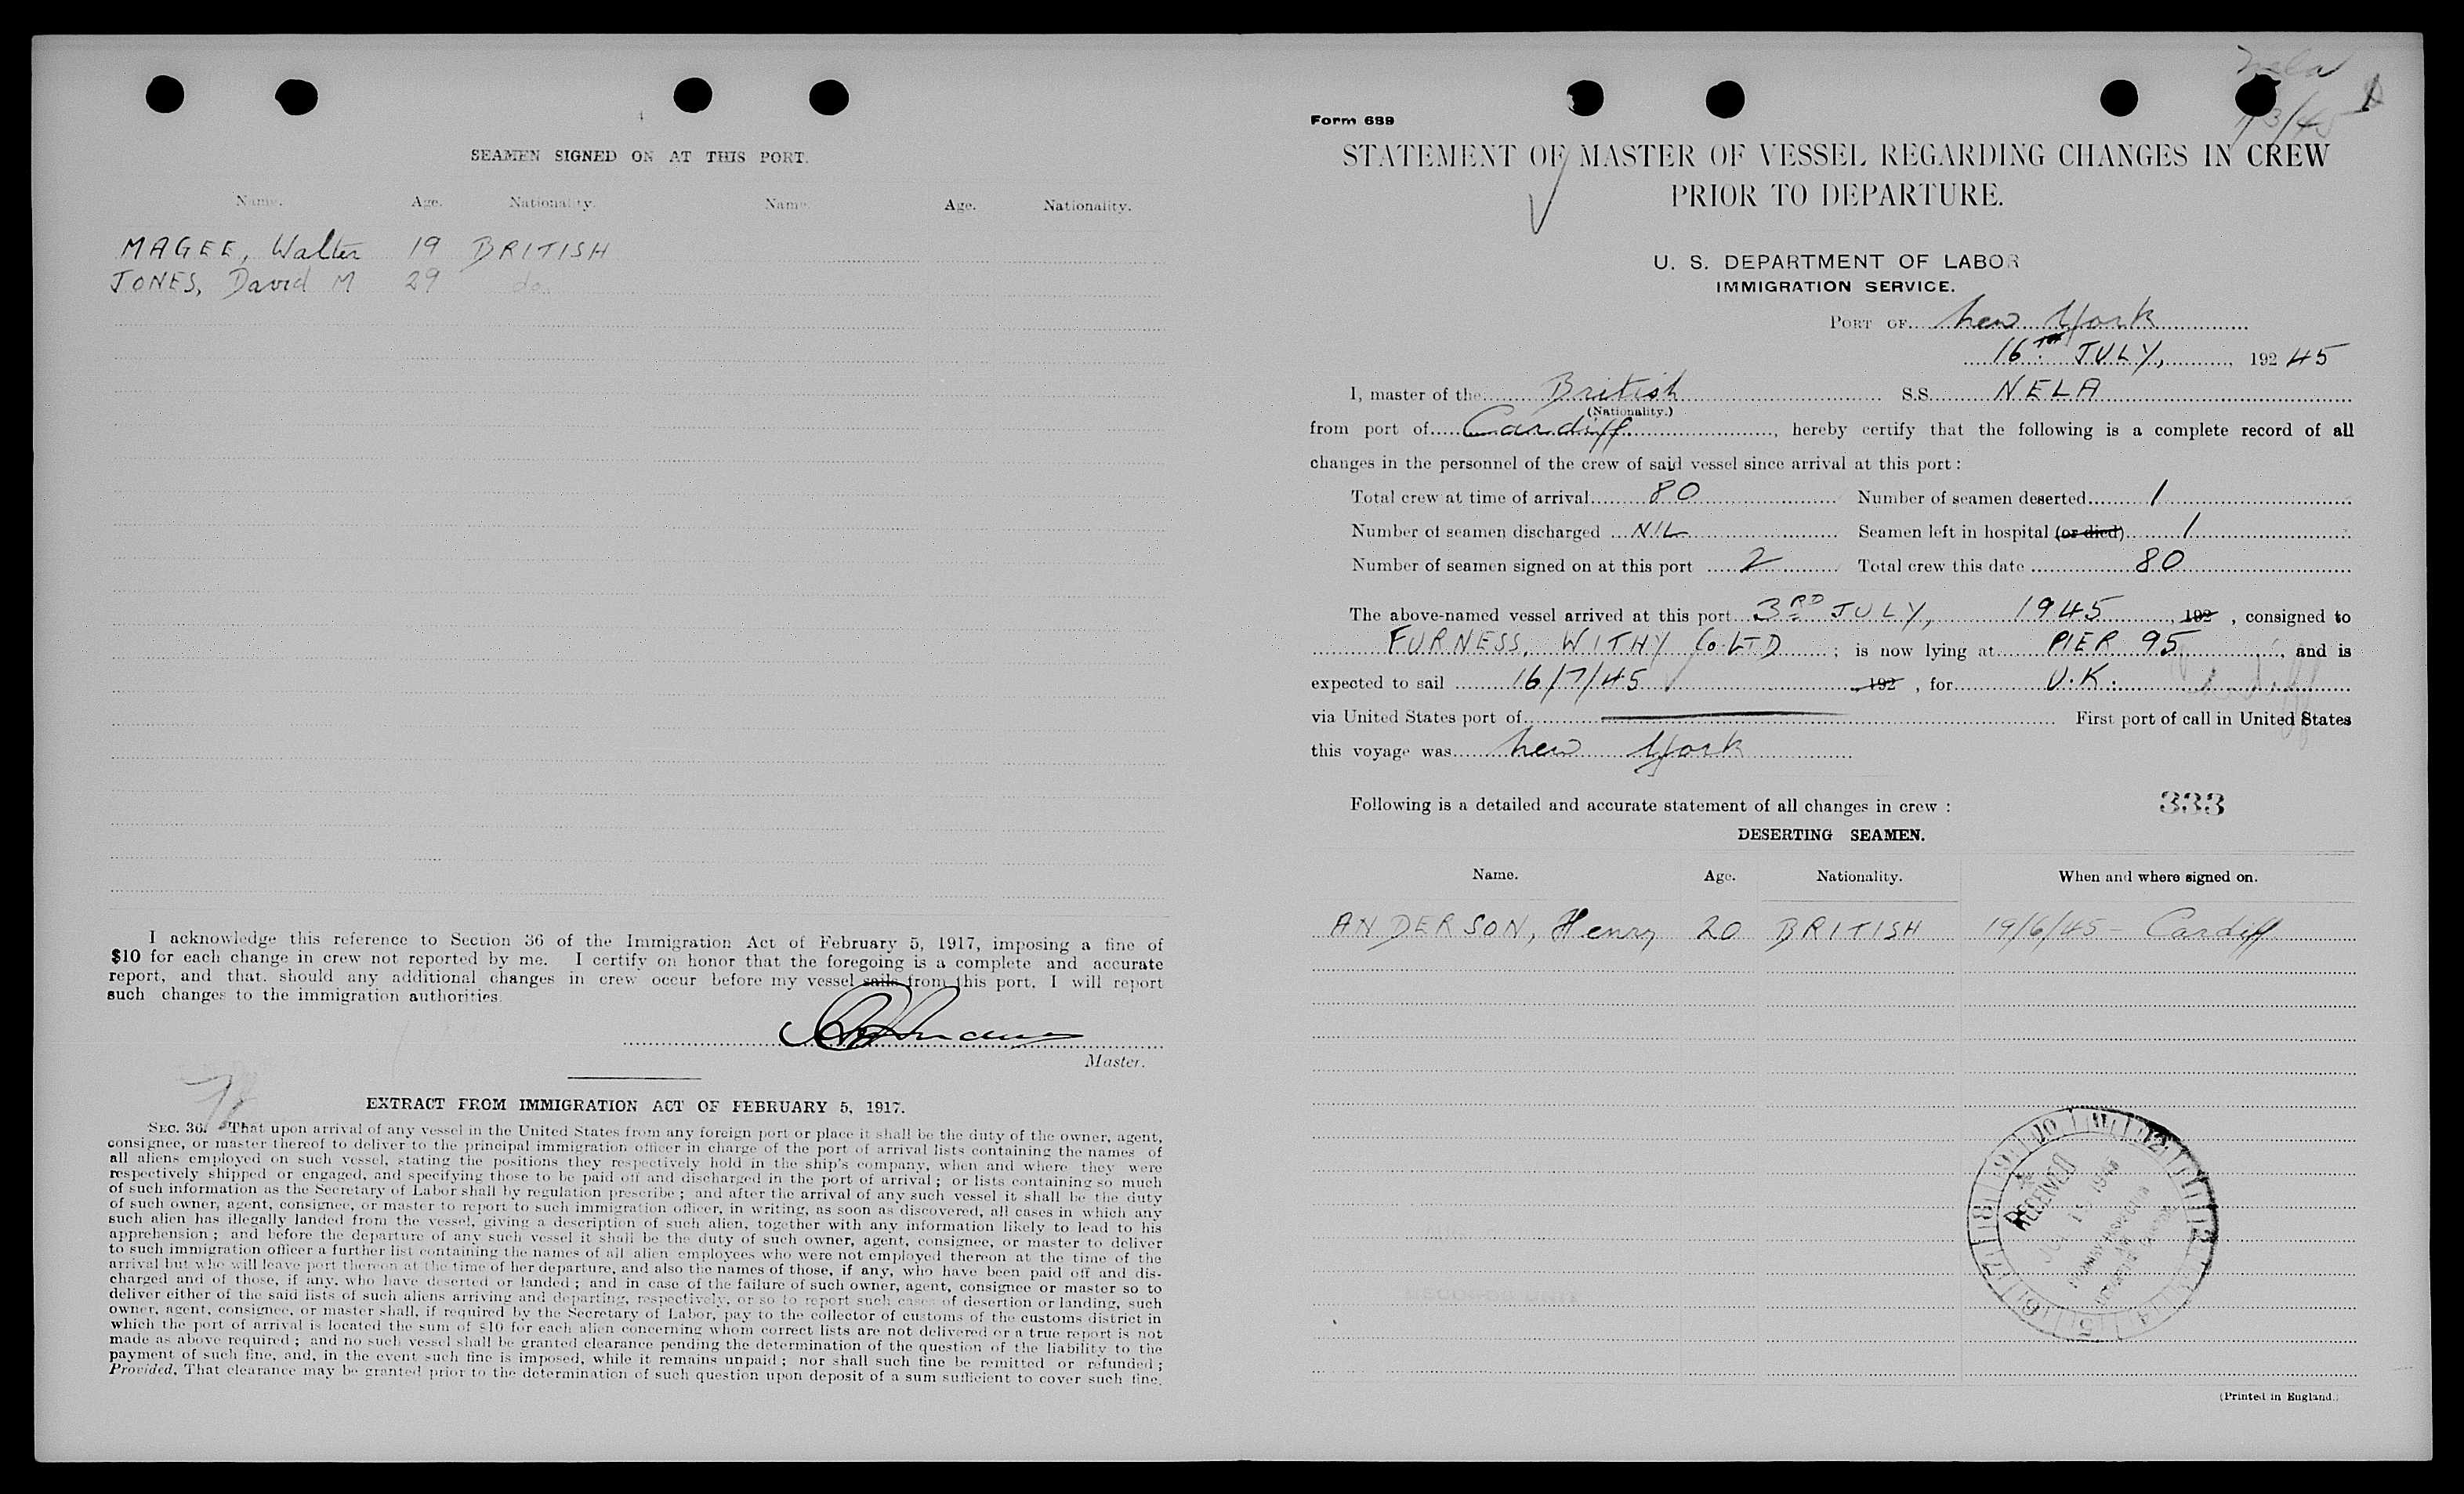 SEAMEN SIGNED ON AT THIS PORT.
Name. Age. Nationality. Name. Age. Nationality.
MAGEE, Walter 19 BRITISH
JONES, David M 29 do.
I acknowledge this reference to Section 36 of the Immigration Act of February 5, 1917, imposing a fine of
$10 for each change in crew not reported by me. I certify on honor that the foregoing is a complete and accurate
report, and that should any additional changes in crew occur before my vessel sails from this port, I will report
such changes to the immigration authorities.
Master.
EXTRACT FROM IMMIGRATION ACT OF FEBRUARY 5, 1917.
SEC. 36. That upon arrival of any vessel in the United States from any foreign port or place it shall be the duty of the owner, agent,
consignee, or master thereof to deliver to the principal immigration officer in charge of the port of arrival lists containing the names of
all aliens employed on such vessel, stating the positions they respectively hold in the ship's company, when and where they were
respectively shipped or engaged, and specifying those to be paid off and discharged in the port of arrival; or lists containing so much
of such information as the Secretary of Labor shall by regulation prescribe; and after the arrival of any such vessel it shall be the duty
of such owner, agent, consignee, or master to report to such immigration officer, in writing, as soon as discovered, all cases in which any
such alien has illegally landed from the vessel, giving a description of such alien, together with any information likely to lead to his
apprehension; and before the departure of any such vessel it shall be the duty of such owner, agent, consignee, or master to deliver
to such immigration officer a further list containing the names of all alien employees who were not employed thereon at the time of the
arrival but who will leave port thereon at the time of her departure, and also the names of those, if any, who have been paid off and dis-
charged and of those, if any, who have deserted or landed; and in case of the failure of such owner, agent, consignee or master so to
deliver either of the said lists of such aliens arriving and departing, respectively, or so to report such cases of desertion or landing, such
owner, agent, consignee, or master shall, if required by the Secretary of Labor, pay to the collector of customs of the customs district in
which the port of arrival is located the sum of $10 for each alien concerning whom correct lists are not delivered or a true report is not
made as above required; and no such vessel shall be granted clearance pending the determination of the question of the liability to the
payment of such fine, and, in the event such fine is imposed, while it remains unpaid; nor shall such fine be remitted or refunded;
Provided, That clearance may be granted prior to the determination of such question upon deposit of a sum sufficient to cover such fine.
Nela
Form 689
STATEMENT OF MASTER OF VESSEL REGARDING CHANGES IN CREW
PRIOR TO DEPARTURE.
U. S. DEPARTMENT OF LABOR
IMMIGRATION SERVICE.
PORT OF New York
16TH JULY, 192 45
I, master of the British S.S. NELA
(Nationality.)
from port of Cardiff, hereby certify that the following is a complete record of all
changes in the personnel of the crew of said vessel since arrival at this port:
Total crew at time of arrival 80 Number of seamen deserted 1
Number of seamen discharged NIL Seamen left in hospital (or died) 1
Number of seamen signed on at this port 2 Total crew this date 80
The above-named vessel arrived at this port 3RD JULY, 1945, 192 , consigned to
FURNESS, WITHY Co LTD; is now lying at PIER 95, and is
expected to sail 16/7/45 192 , for U.K. Cardiff
via United States port of First port of call in United States
this voyage was New York
Following is a detailed and accurate statement of all changes in crew:
333
DESERTING SEAMEN.
Name. Age. Nationality. When and where signed on.
ANDERSON, Henry 20 BRITISH 19/6/45 - Cardiff
RECEIVED
(Printed in England.)